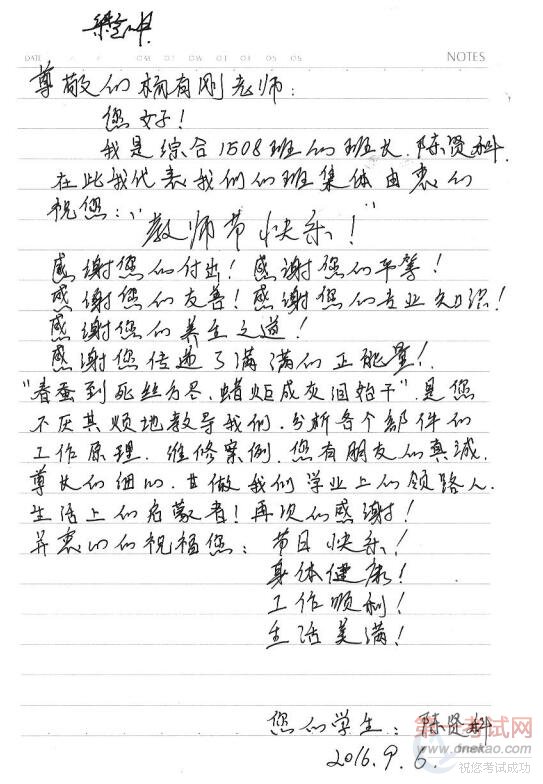 DATE
NOTES
尊敬的杨有刚老师：
您好！
我是综合1508班的班长，陈贤科，
在此我代表我们的班集体由衷的
祝您："
教师节快乐！"
感谢您的付出！感谢您的平等！
感谢您的友善！感谢您的专业知识！
感谢您的养生之道！
感谢您传递了满满的正能量！
"春蚕到死丝方尽，蜡炬成灰泪始干"，是您
不厌其烦地教导我们，分析各个部件的
工作原理，维修案例，您有朋友的真诚，
尊长的细心，甘做我们学业上的领路人，
生活上的启蒙者！再次的感谢！
并衷心的祝福您：节日快乐！
身体健康！
工作顺利！
生活美满！
您的学生：陈贤科
2016.9.6.
第一考试网
www.onekao.com
祝您考试成功